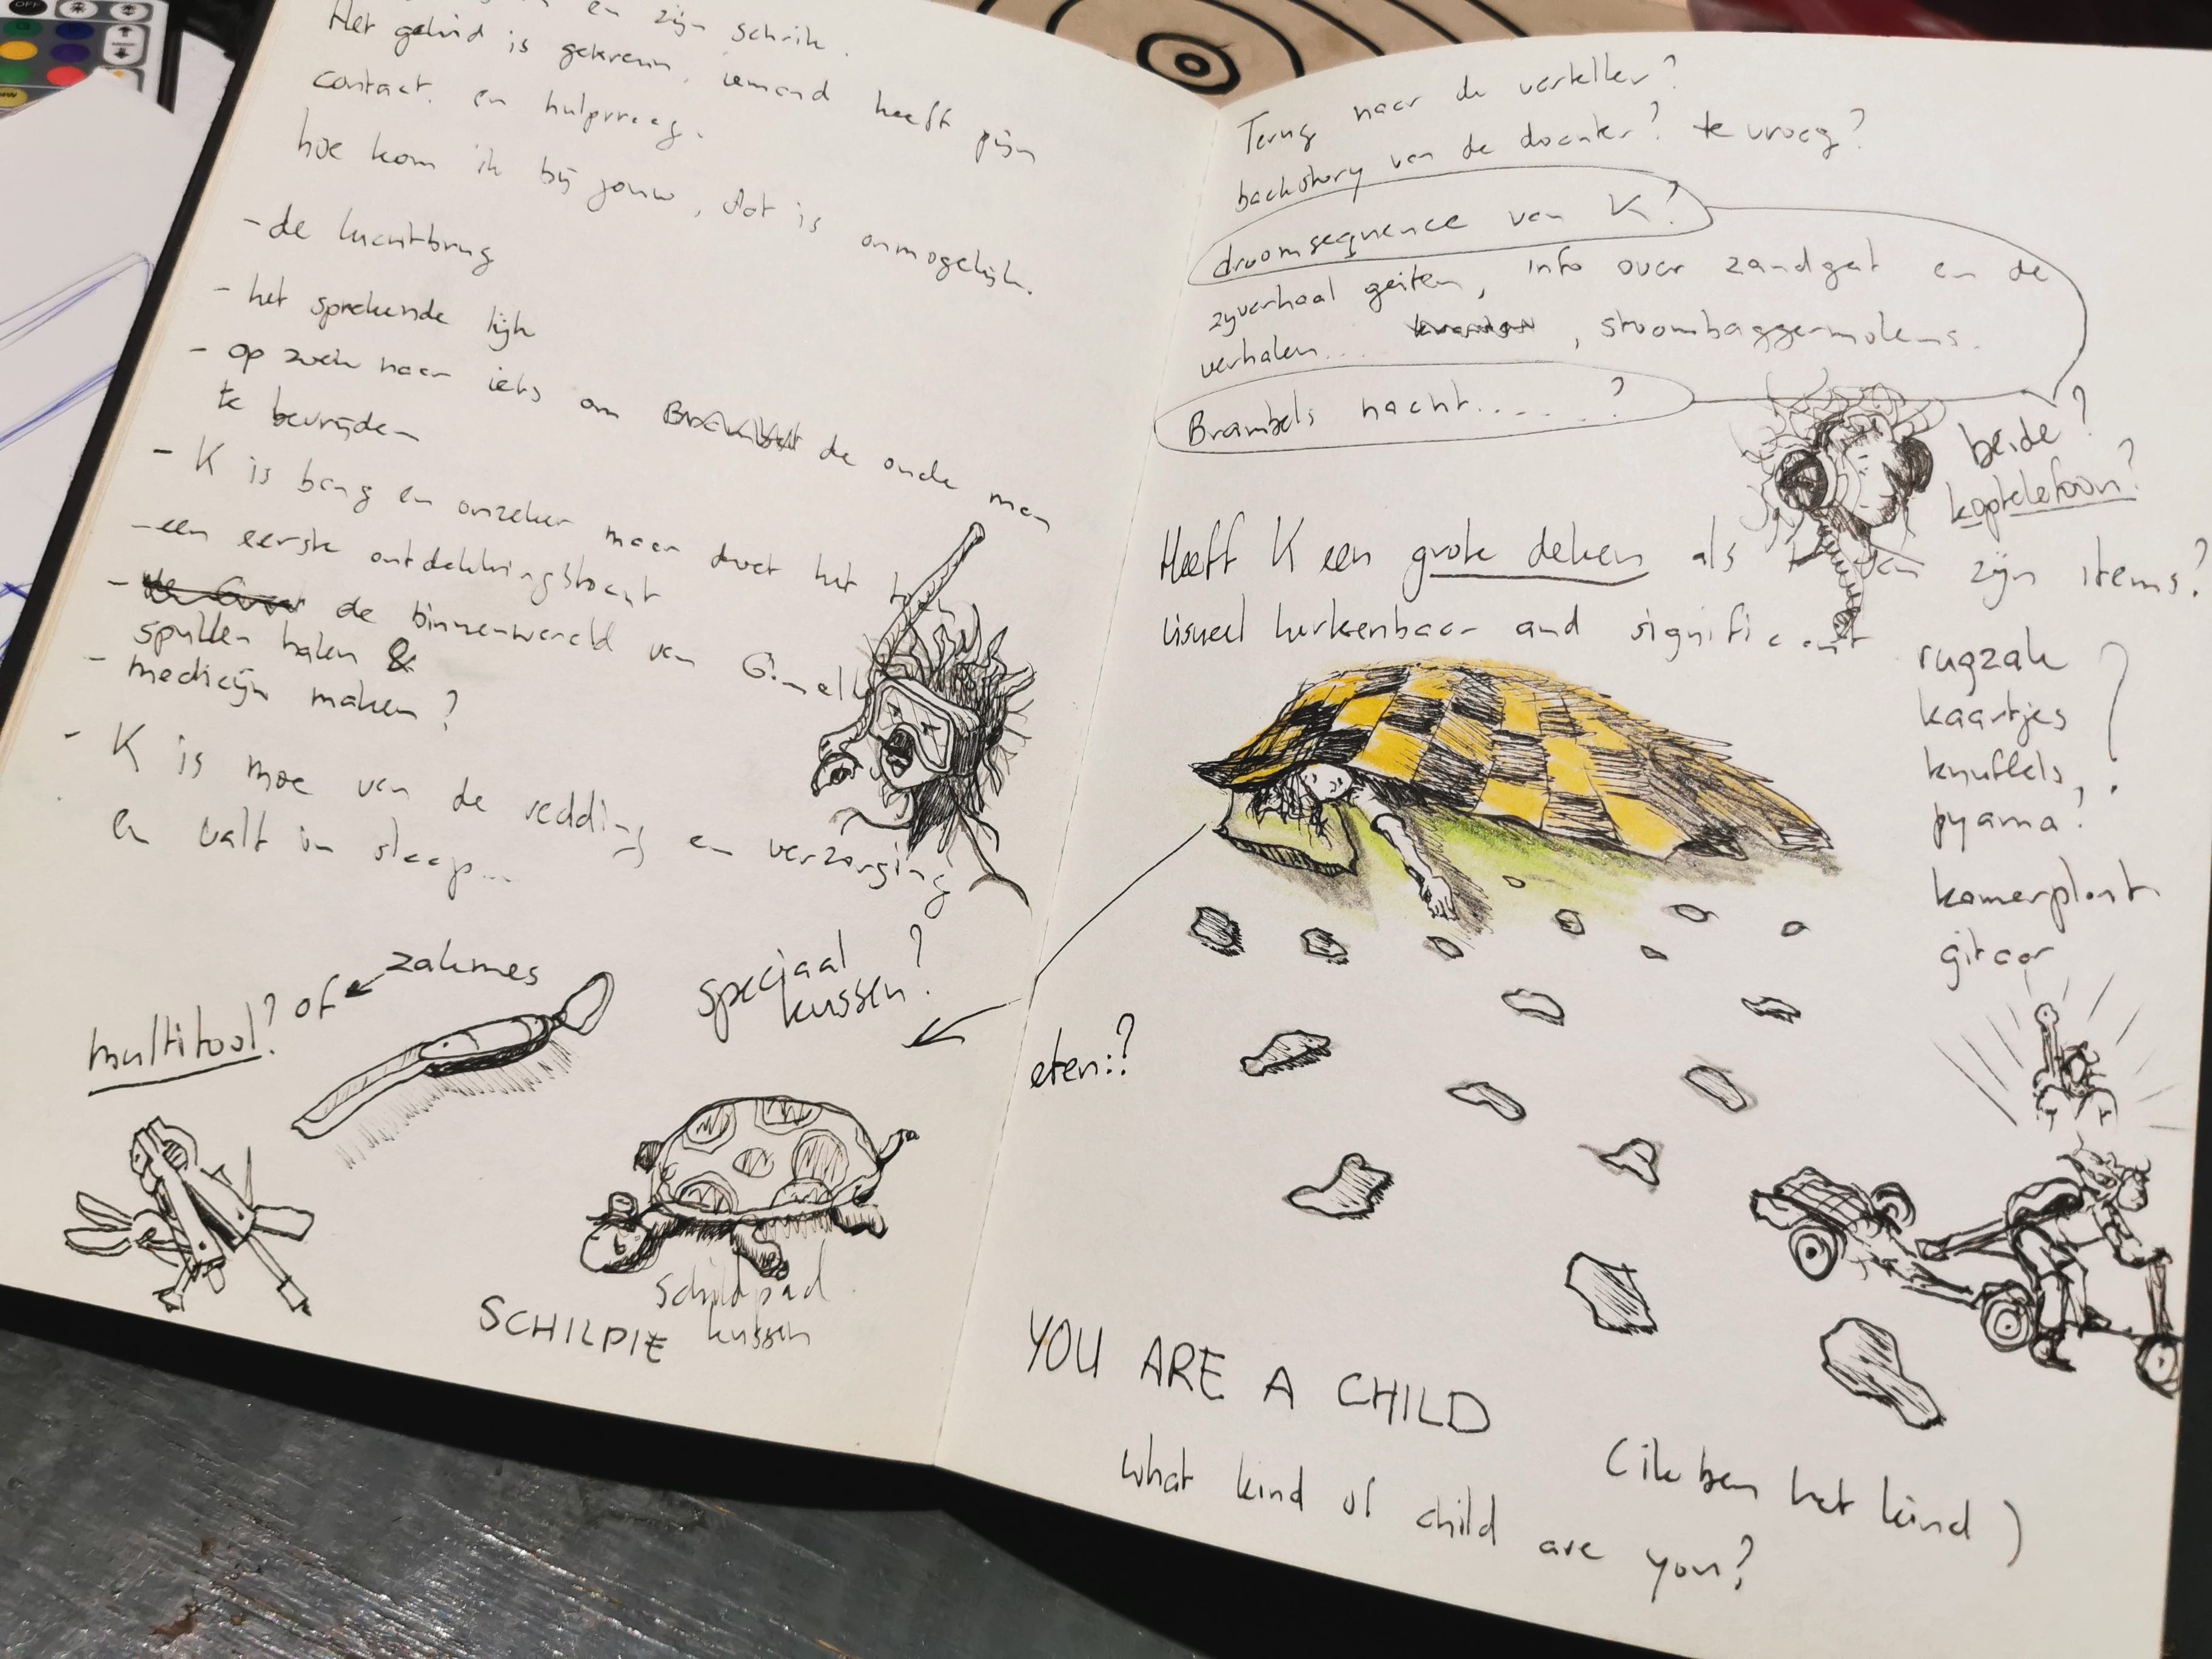 en zijn schrik.
Het geluid is gekreun, iemand heeft pijn
contact. en hulpvraag.
hoe kom ik bij jouw, dat is onmogelijk.
- de luchtbrug
- het sprekende lijk
- op zoek naar iets om de oude man
te bevrijden
- K is bang en onzeker maar doet het toch
- een eerste ontdekkingstocht
- de binnenwereld van
spullen halen &
- medicijn maken?
- K is moe van de redding en verzorging
en valt in slaap...
zakmes
of
multitool?
speciaal
kussen?
schildpad
kussen
SCHILPIE
Terug naar de verteller?
backstory van de dochter? te vroeg?
droomsequence van K?
zijverhaal geiten, info over zandgat en de
verhalen.... , stoombaggermolens.
Brambels nacht......?
beide?
koptelefoon?
Heeft K een grote deken als van zijn items?
visueel herkenbaar and significant
rugzak
kaartjes
knuffels,
pyama?
kamerplant
gitaar
?
eten:?
YOU ARE A CHILD
(ik ben het kind)
what kind of child are you?
OFF